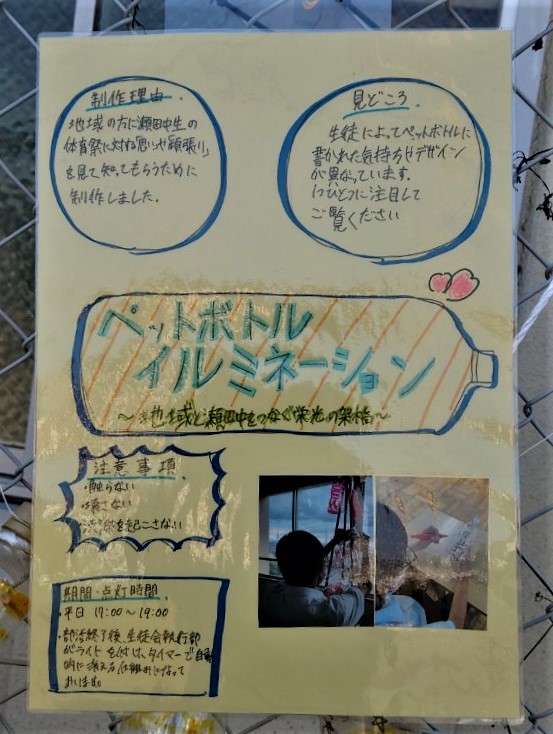 制作理由
地域の方に瀬田中生の
体育祭に対する「思いや頑張り」
を見て知ってもらうために
制作しました.
見どころ
生徒によってペットボトルに
書かれた気持ちやデザイン
が異なっています.
1つひとつに注目して
ご覧ください
ペットボトル
イルミネーション
〜地域と瀬田中をつなぐ栄光の架橋〜
注意事項
・触らない
・壊さない
・渋滞を起こさない
期間・点灯時間
・平日 17:00〜19:00
・部活終了後、生徒会執行部
がライトを付け、タイマーで自動
的に消える仕組みになって
います。